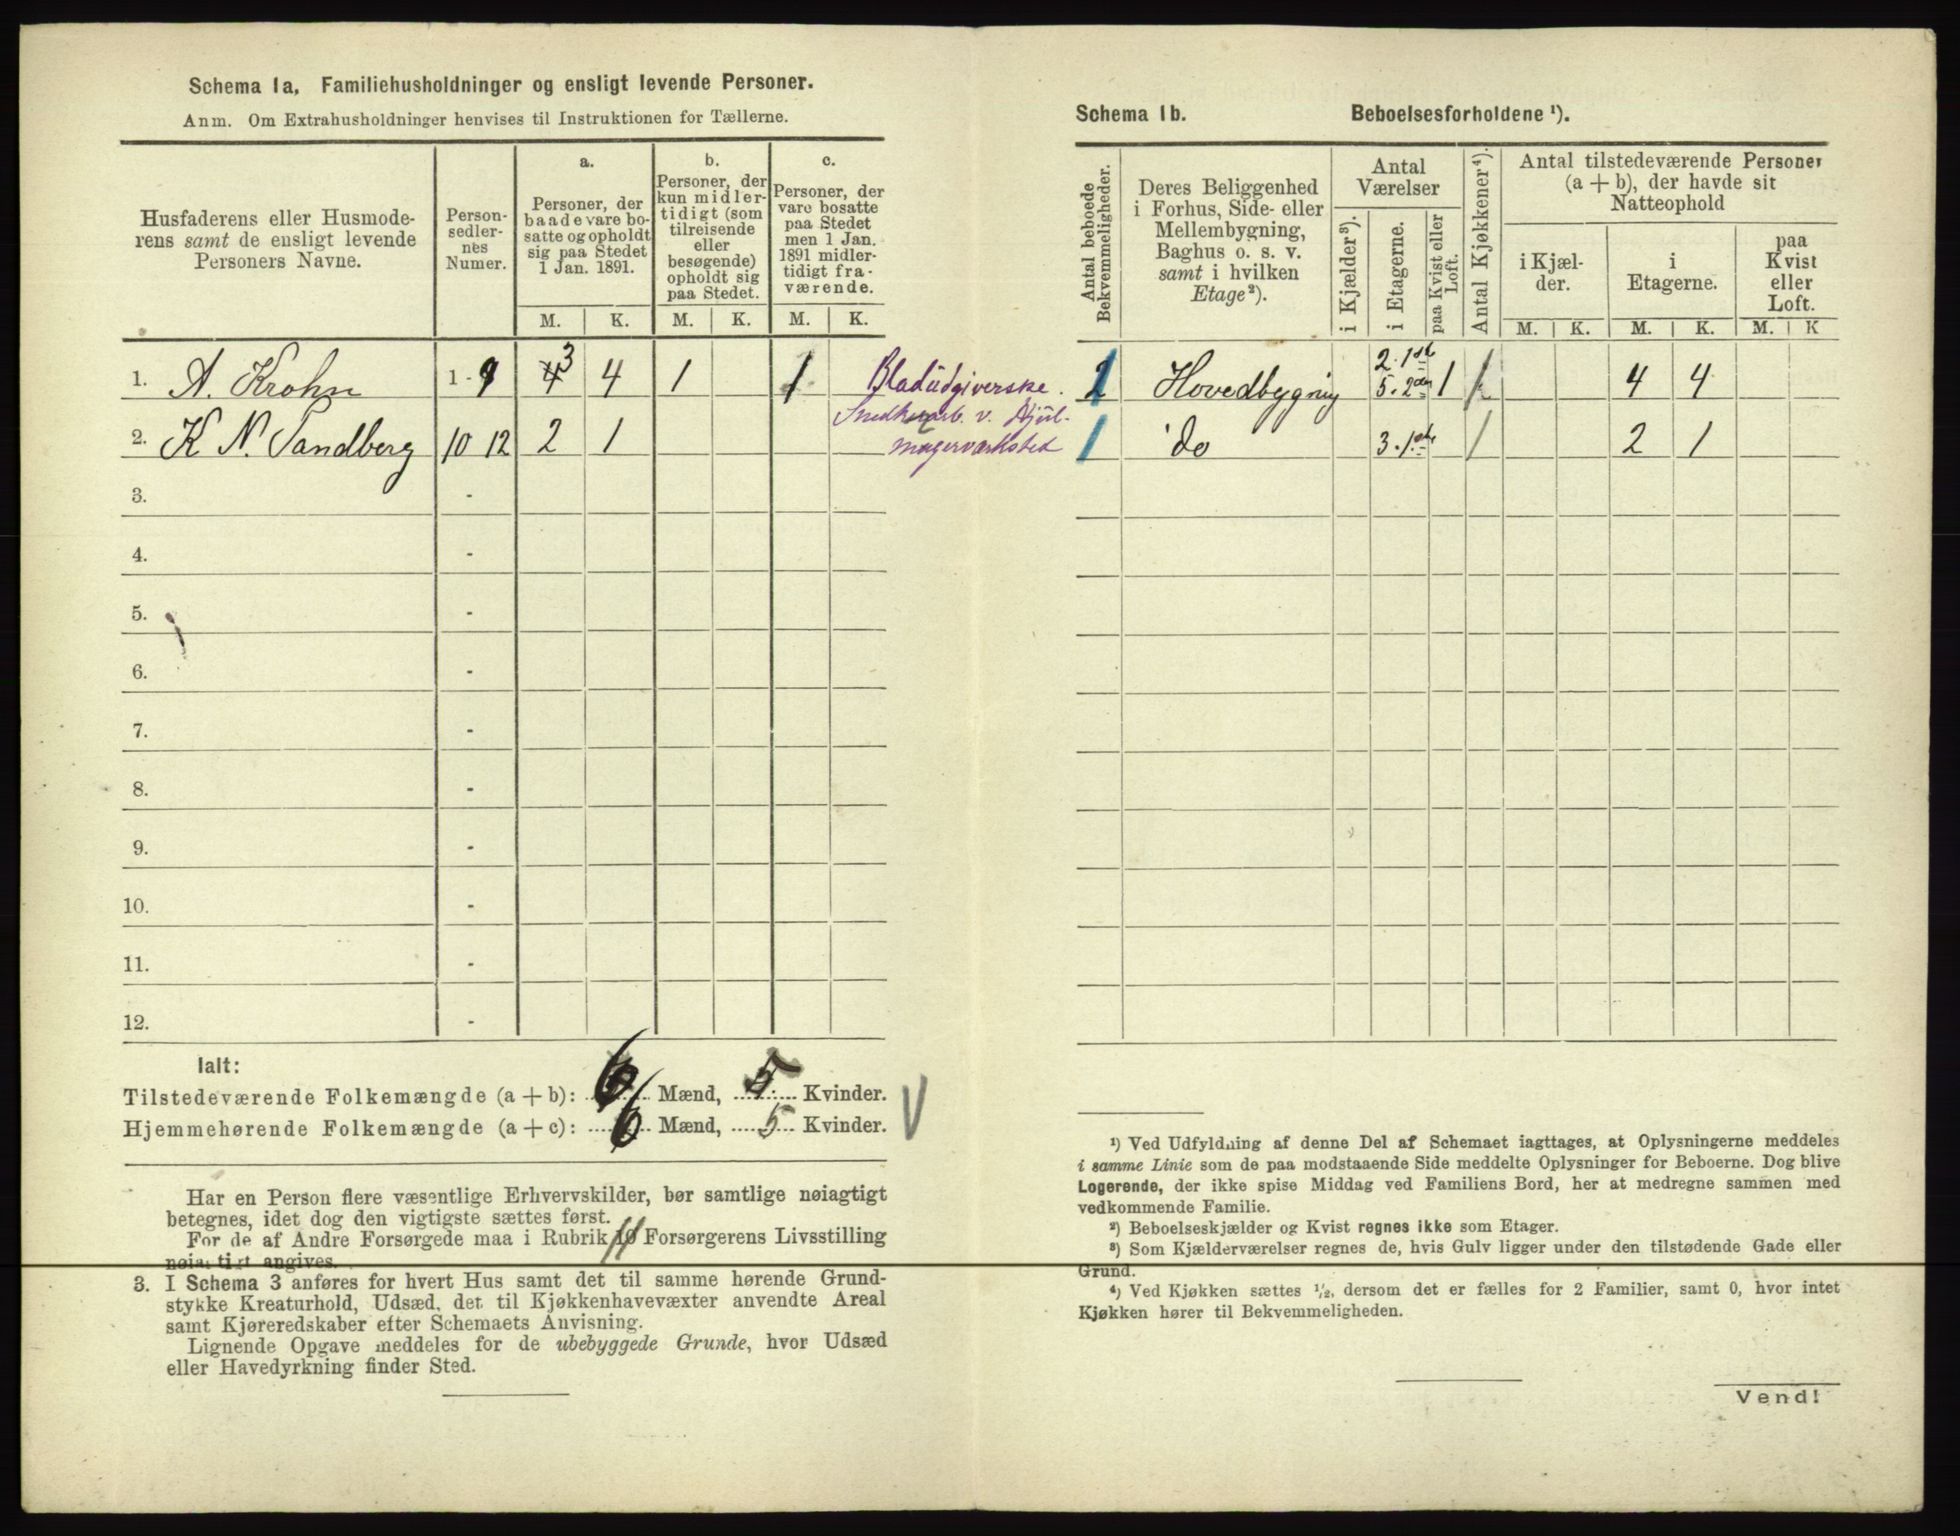 Schema 1a, Familiehusholdninger og ensligt levende Personer.
Anm. Om Extrahusholdninger henvises til Instruktionen for Tællerne.
Husfaderens eller Husmode-
rens samt de ensligt levende
Personers Navne.
Person-
sedler-
nes
Numer.
a.
Personer, der
baade vare bo-
satte og opholdt
sig paa Stedet
1 Jan. 1891.
b.
Personer, der
kun midler-
tidigt (som
tilreisende
eller
besøgende)
opholdt sig
paa Stedet.
c.
Personer, der
vare bosatte
paa Stedet
men 1 Jan.
1891 midler-
tidigt fra-
værende.
M. K. M. K. M. K.
1. A. Krohn 1 - 9 4 3 4 1 1 Bladudgiverske.
2. K N. Sandberg 10 12 2 1 v. Hjul-
magerværksted
3. -
4. -
5. -
6. -
7. -
8. -
9. -
10. -
11. -
12. -
Ialt:
Tilstedeværende Folkemængde (a + b): 6 Mænd, 5 Kvinder.
Hjemmehørende Folkemængde (a + c): 6 Mænd, 5 Kvinder.
Har en Person flere væsentlige Erhvervskilder, bør samtlige nøiagtigt
betegnes, idet dog den vigtigste sættes først.
For de af Andre Forsørgede maa i Rubrik 10 11 Forsørgerens Livsstilling
nøiagtigt angives.
3. I Schema 3 anføres for hvert Hus samt det til samme hørende Grund-
stykke Kreaturhold, Udsæd, det til Kjøkkenhavevæxter anvendte Areal
samt Kjøreredskaber efter Schemaets Anvisning.
Lignende Opgave meddeles for de ubebyggede Grunde, hvor Udsæd
eller Havedyrkning finder Sted.
Schema 1b. Beboelsesforholdene ¹).
Antal beboede
Bekvemmeligheder.
Deres Beliggenhed
i Forhus, Side- eller
Mellembygning,
Baghus o. s. v.
samt i hvilken
Etage²).
Antal
Værelser
i Kjælder³).
i Etagerne.
paa Kvist eller
Loft.
Antal Kjøkkener⁴).
Antal tilstedeværende Personer
(a + b), der havde sit
Natteophold
i Kjæl-
der.
i
Etagerne.
paa
Kvist
eller
Loft.
M. K. M. K. M. K
2 Hovedbygnig 2. 1ste 5. 2den 1 1 4 4
1 do 3. 1ste 1 2 1
¹) Ved Udfyldning af denne Del af Schemaet iagttages, at Oplysningerne meddeles
i samme Linie som de paa modstaaende Side meddelte Oplysninger for Beboerne. Dog blive
Logerende, der ikke spise Middag ved Familiens Bord, her at medregne sammen med
vedkommende Familie.
²) Beboelseskjælder og Kvist regnes ikke som Etager.
³) Som Kjælderværelser regnes de, hvis Gulv ligger under den tilstødende Gade eller
Grund.
⁴) Ved Kjøkken sættes ½, dersom det er fælles for 2 Familier, samt 0, hvor intet
Kjøkken hører til Bekvemmeligheden.
Vend!